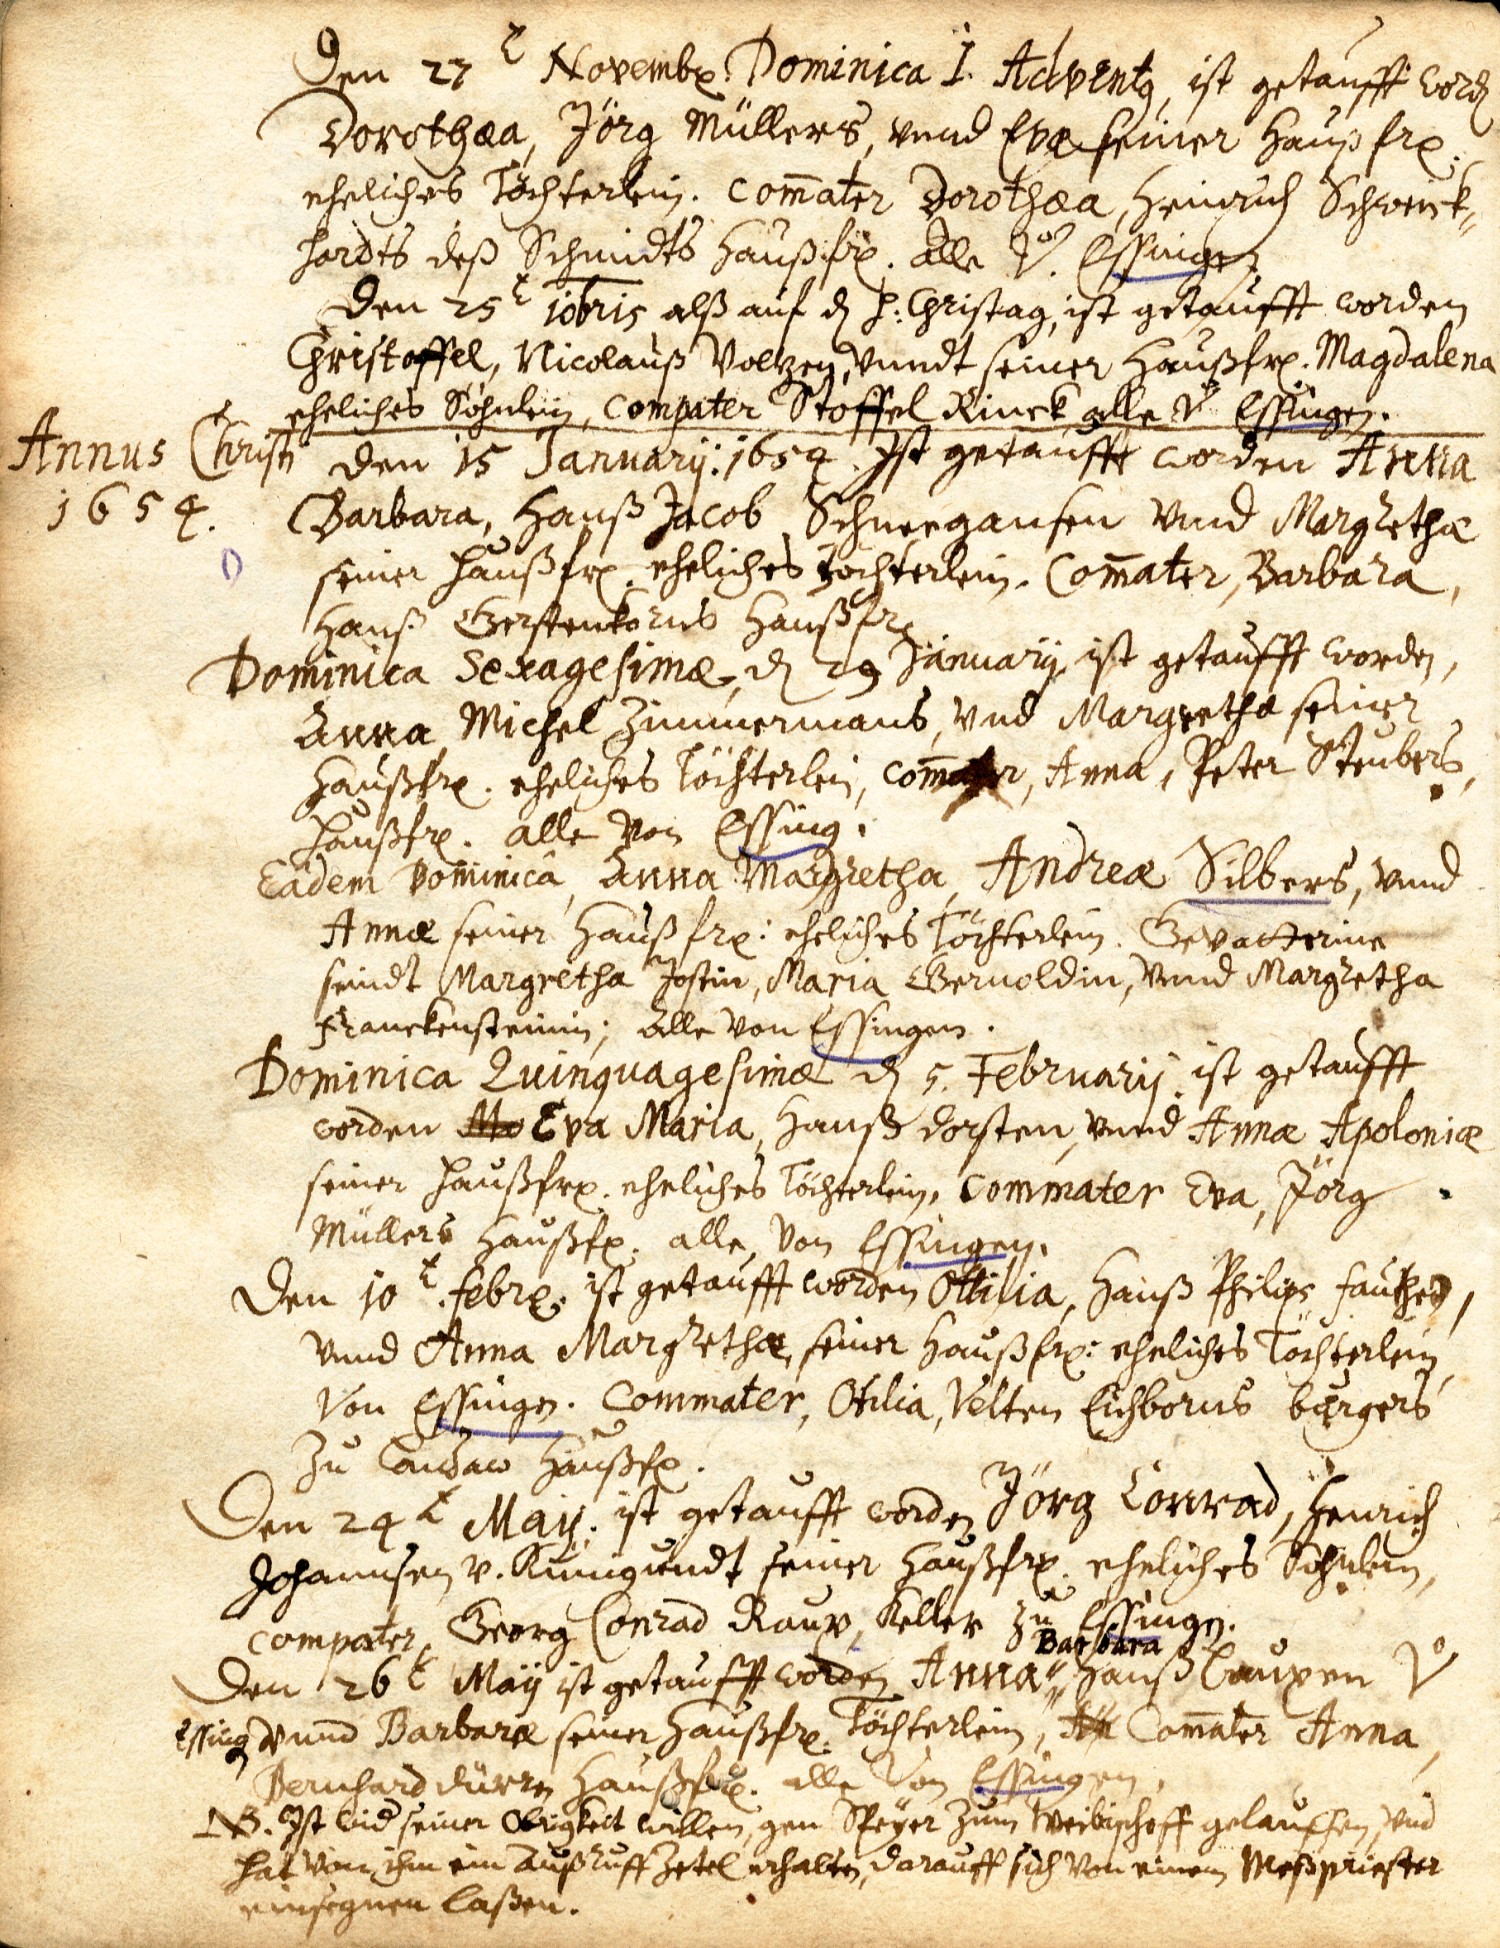 Den 27t Novembr. Dominica I. Advents, ist getaufft word
Dorothæa, Jörg Müllers, vnnd Evæ seiner Haußfr.
eheliches Töchterlein. Com̄ater Dorothæa, Heinrich Schweick-
hardts deß Schmidts Haußfr. Alle v. Essingen
Den 25t 10bris alß auf d h: Christag, ist getaufft worden
Christoffel, Nicolauß Voltzen, vnndt seiner Haußfr. Magdalena
eheliches Söhnlein, Compater Stoffel Rinck alle v Essingen.
Annus Christi
1654.
Den 15 Januarij: 1654. Ist getaufft worden Anna
Barbara, Hanß Jacob Schneegansen vnnd Margrethæ
seiner Haußfr. eheliches Töchterlein. Com̄ater, Barbara,
Hanß Gerstenkorns Haußfr
Dominica Sexagesimæ, d 29 Januarij ist getaufft worden,
Anna Michel Zimmermans, vnd Margrethæ seiner
Haußfr. eheliches Töchterlein, Com̄ater, Anna, Peter Steubers,
Haußfr. alle von Essing.
Eadem Dominicâ, Anna Margretha, Andreæ Silbers, vnnd
Annæ seiner Haußfr: eheliches Töchterlein. Gevatterine
seindt Margretha Jostin, Maria Gernoldin, vnnd Margretha
Franckensteinin; Alle von Essingen.
Dominica Quinquagesimæ d 5. Februarij ist getaufft
worden Ma Eva Maria, Hanß Dorsten, vnnd Annæ Apoloniæ
seiner Haußfr. eheliches Töchterlein, Commater Eva, Jörg
Müllers Haußfr. alle, von Essingen.
Den 10t. febr. ist getaufft worden Ottilia, Hanß Philips Fauthen,
vnnd Anna Margrethæ, seiner Haußfr: eheliches Töchterlein,
Von Essingen. Commater, Otilia, Velten Eichborns burgers
zu Landaw Haußfr.
Den 24t Maij. ist getaufft worden Jörg Conrad, Henrich
Johannsen v. Kunigundt seiner Haußfr. eheliches Söhnlein,
Compater, Georg Conrad Raup, Keller zu Essingen.
Barbara
Den 26t Maij ist getaufft worden Anna Hanß Lauxen v
Essing vnnd Barbaræ seiner Haußfr. Töchterlein, An Com̄ater Anna,
Bernhard Dürren Haußfr. alle von Essingen.
NB. Ist wid seiner Obrigkeit willen, gen Speyer zum Weibischoff gelauffen, vnd
hat von ihm ein Außruff Zetel erhalten, darauff sich von einem Meßpriester
einsegnen laßen.